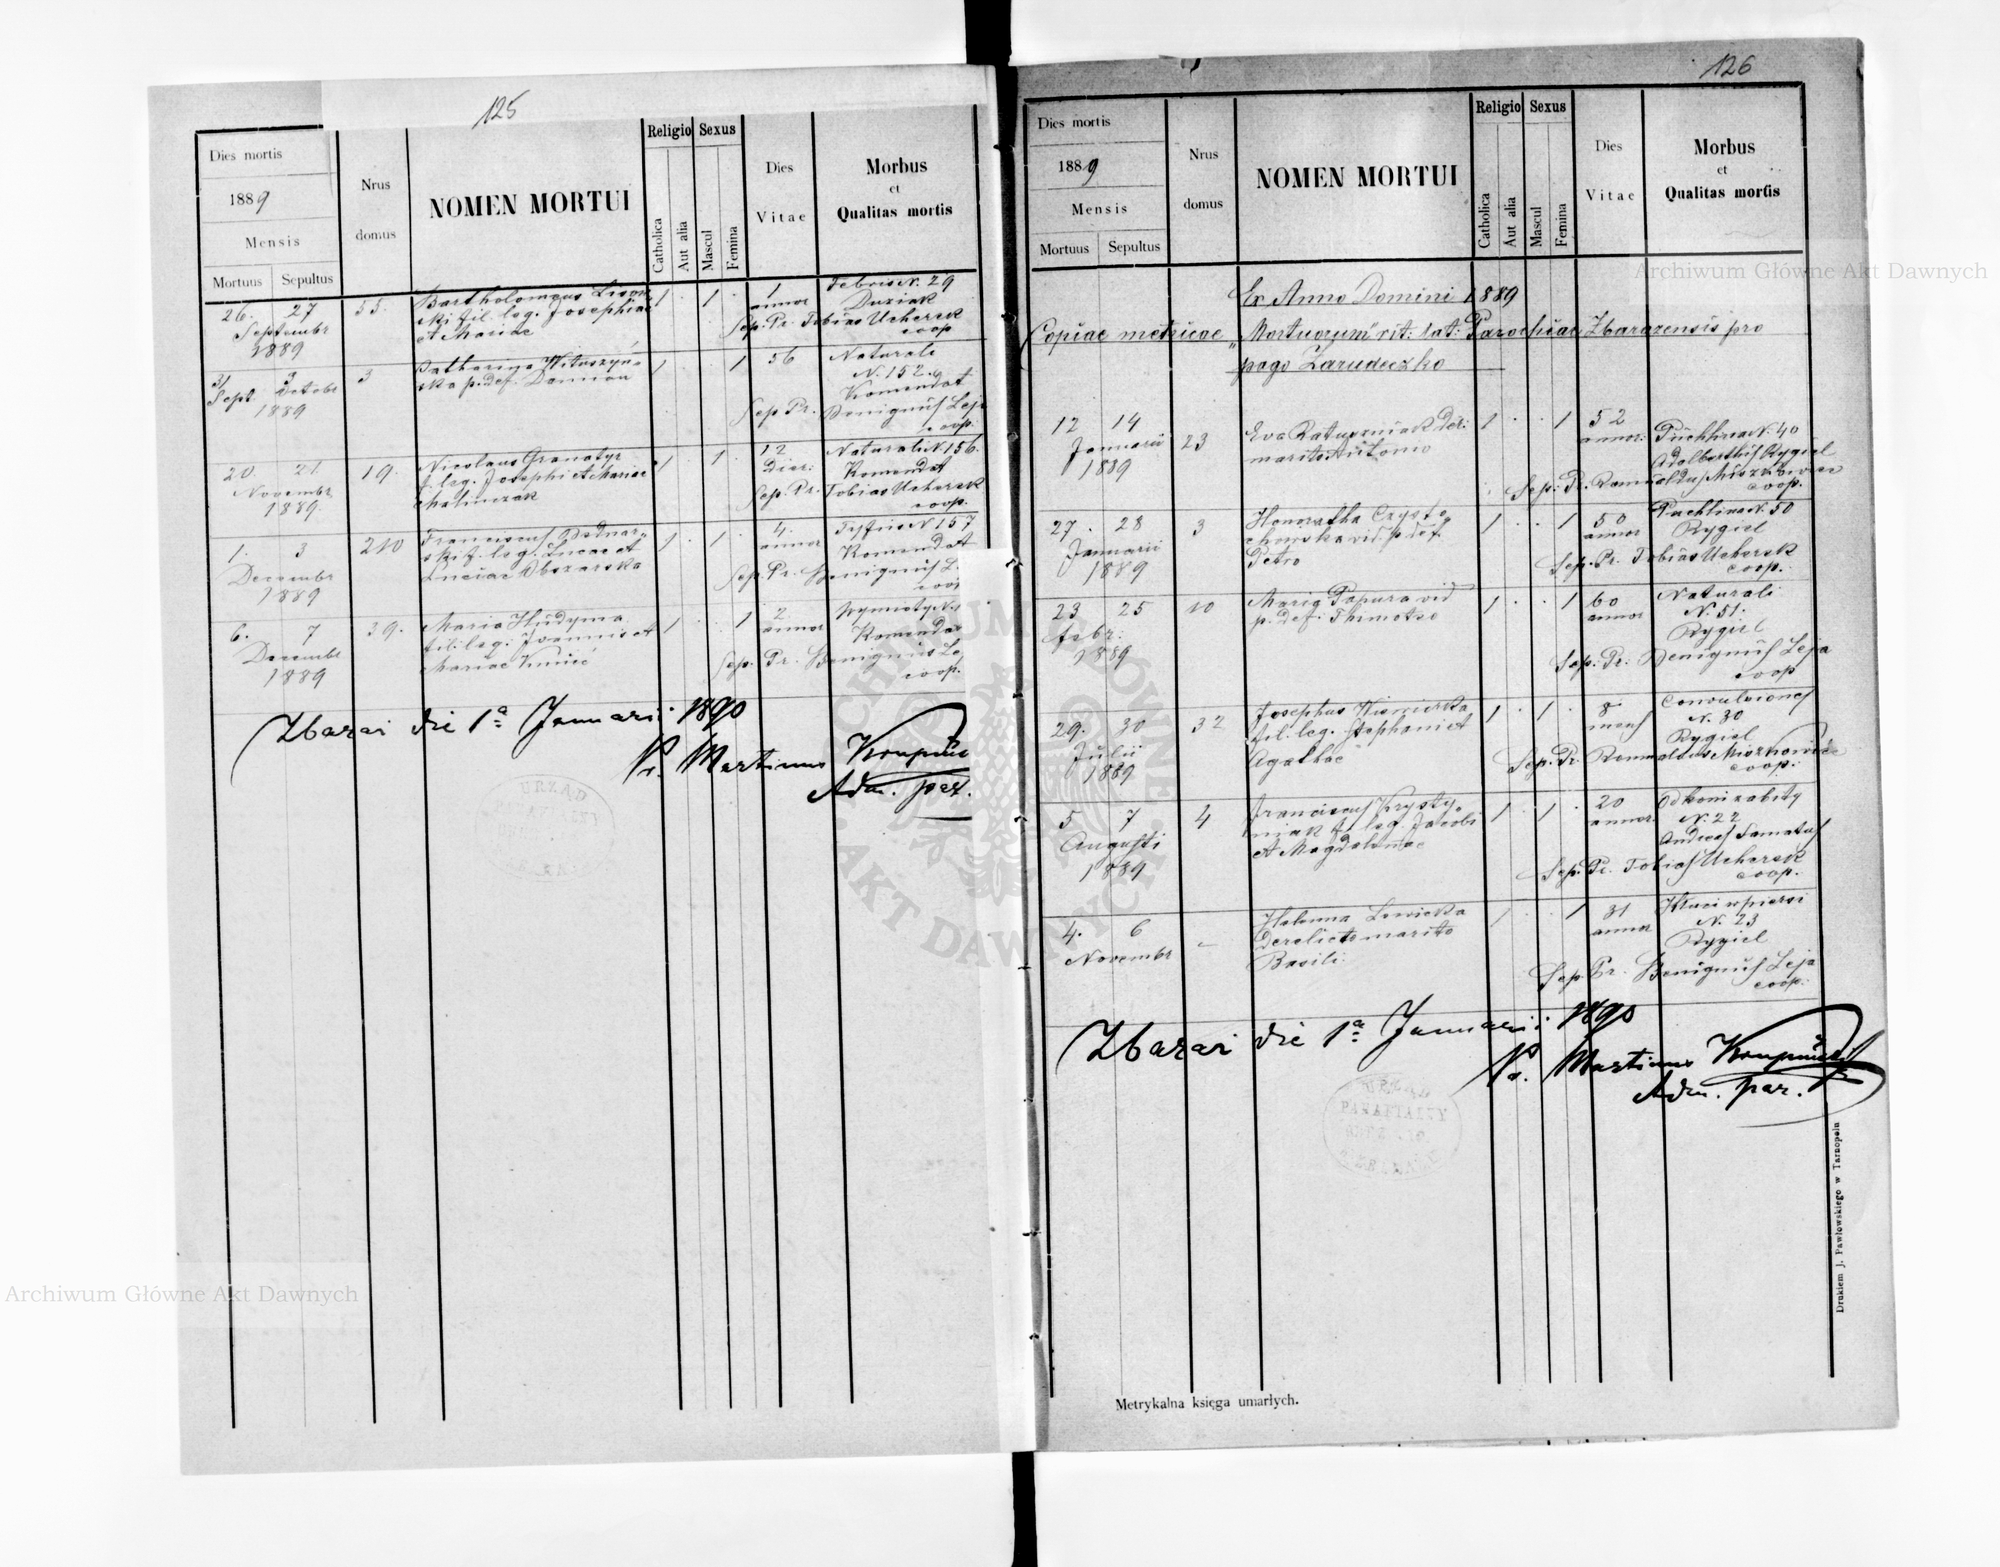 125
Dies mortis
1889
Mensis
Mortuus
Sepultus
Nrus
domus
NOMEN MORTUI
Religio
Catholica
Aut alia
Sexus
Mascul
Femina
Dies
Vitae
Morbus
et
Qualitas mortis
26. 27
Septembr
1889
55.
Bartholomeus
ski fil. leg. Josephi
et Mariae
1 1
1
annor
Febris N. 29
Duziak
Sep: Pr. Tobias Ucherek
coop
31 3
Sept. Octobr
1889
3
Catharina
ska p. def. Damian
1 1
56
Naturali
N. 152.
Komendat
Sep Pr. Benignus Leja
coop.
20. 21.
Novembr
1889.
19.
Nicolaus Granatyr
f. leg. Josephi et Mariae
Malinczak
1 1
12
Dier:
Naturali N 156.
Komendat
Sep. Pr. Tobias Ucherek
coop.
1. 3
Decembr
1889
210
Franciscus Bednar-
ski f. leg. Lucae et
Luciae Obszarska
1 1
4.
annor
Tyfus N 157
Komendat
Sep. Pr. Benignus L
6. 7
Decembr
1889
39.
Maria Hudyma
fil. leg. Joannis et
Mariae
1 1
2
annor
Komenda
Sep. Pr. Benignus Le
coop.
Zbaraż die 1ª Januarii 1890
Pr. Martinus
Adm. par.
URZĄD
126
Dies mortis
1889
Mensis
Mortuus
Sepultus
Nrus
domus
NOMEN MORTUI
Religio
Catholica
Aut alia
Sexus
Mascul
Femina
Dies
Vitae
Morbus
et
Qualitas mortis
Ex Anno Domini 1889
Copiae metricae „Mortuorum" rit: lat: Parochiae Zbarazensis pro
pago Zarudeczko
12 14
Januarii
1889
23
Eva Ratuszniak der:
marito Antonio
1 1
52
annor:
Puchlina N. 40
Adalbertus Rygiel
Sep: Pr. Romualdus Miszkiewicz
coop.
27. 28
Januarii
1889
3
Honoratha
chowska vid. p. def.
Petro
1 1
50
annor
Puchlina N. 50
Rygiel
Sep. Pr. Tobias Ucherek
coop.
23 25
febr:
1889
10
Maria Papura vid
p. def. Thimoteo
1 1
60
annor
Naturali
N. 51.
Rygiel
Sep: Pr: Benignus Leja
coop
29. 30
Julii
1889
32
Josephus
fil. leg. Stephani et
Agathae
1 1
8
mens
Convulsiones
N. 30
Rygiel
Sep. Pr. Romualdus
coop.
5 7
Augusti
1889
4
Franciscus Krysty-
niak f. leg. Jacobi
et Magdalenae
1 1
20
annor
Od koni zabity
N. 22
Andreas
Sep. Pr. Tobias Ucherek
coop.
4. 6
Novembr
-
Helenna Lewicka
derelicta marito
Basili
1 1
31
annor
N. 23
Rygiel
Sep. Pr. Benignus Leja
coop.
Zbaraż die 1ª Januarii 1890
Pr. Martinus
Adm. par.
Metrykalna księga umarłych.
Drukiem J. Pawłowskiego w Tarnopolu
Archiwum Główne Akt Dawnych
Archiwum Główne Akt Dawnych
ARCHIWUM GŁÓWNE AKT DAWNYCH